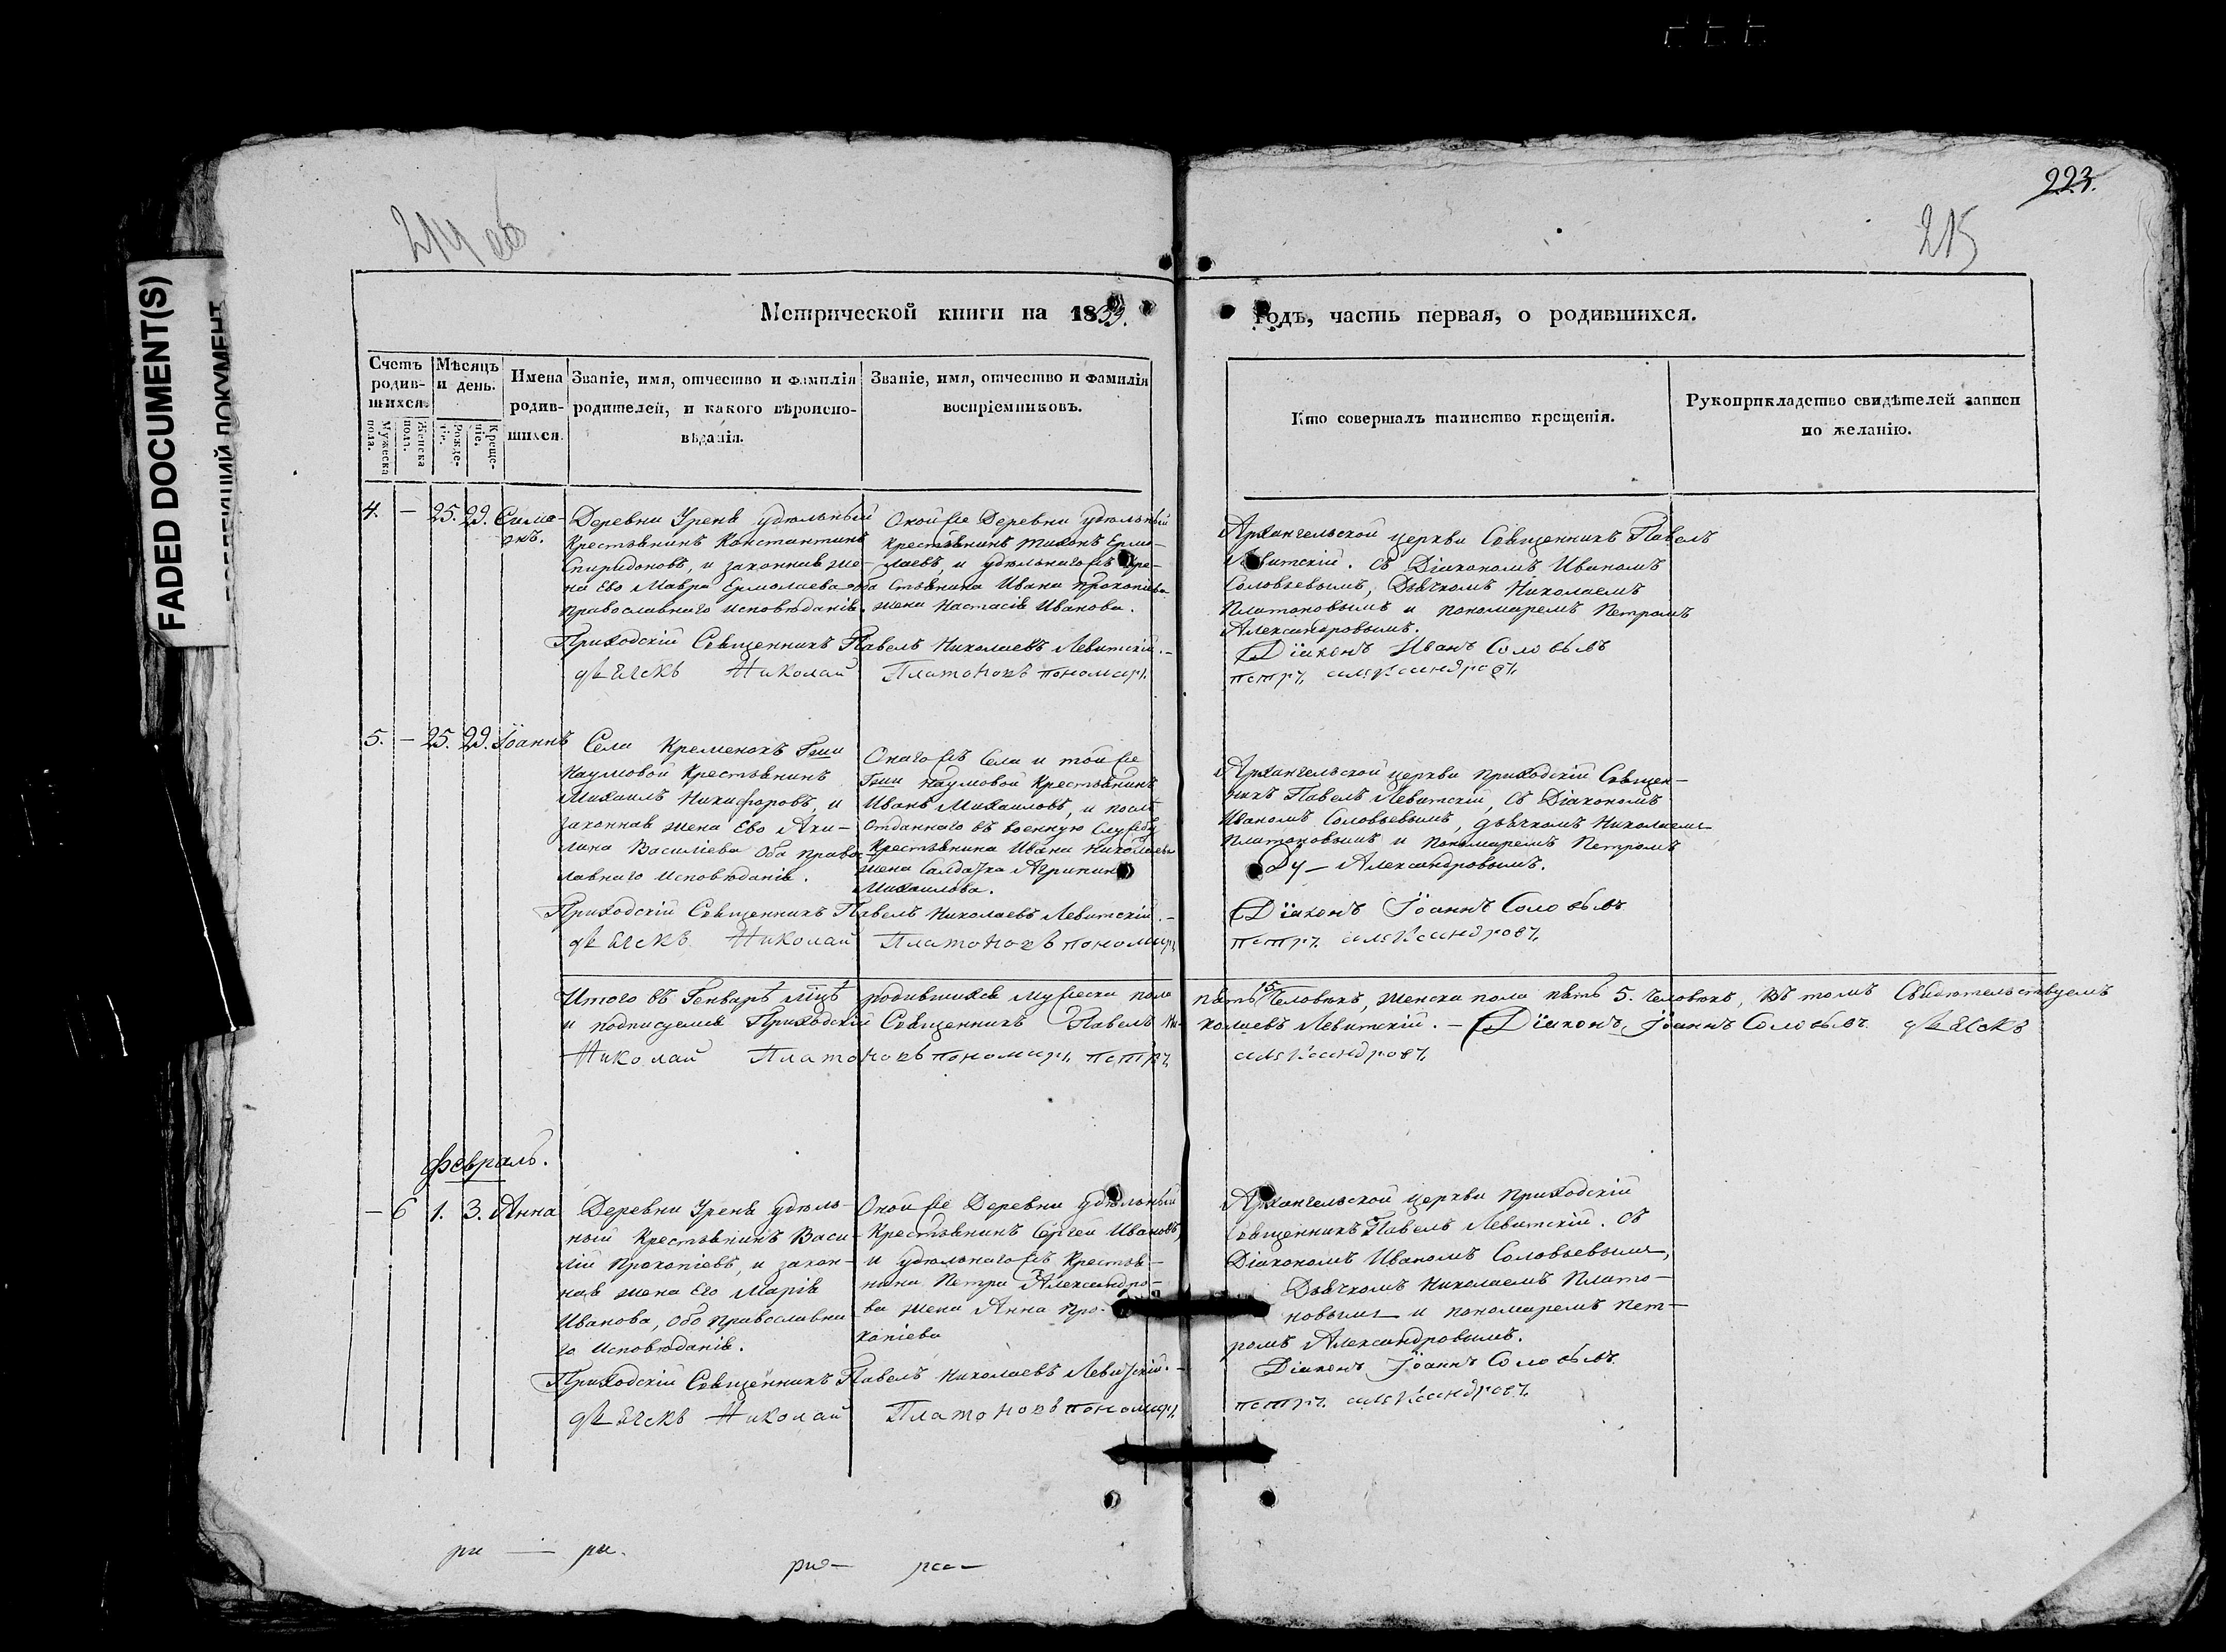 223.
214 об
215
FADED DOCUMENT(S)
Метрической книги на 1839. Годъ, часть первая, о родившихся.
Счетъ родив-шихся.
Мѣсяцъ и день.
Имена родив-шихся.
Званіе, имя, отчество и фамилія родителей, и какого вѣроиспо-вѣданія.
Званіе, имя, отчество и фамилія воспріемниковъ.
Кто совершалъ таинство крещенія.
Рукоприкладство свидѣтелей записи по желанію.
Мужеска пола.
Женска пола.
Рожде-ніе.
Креще-ніе.
4. — 25. 29. Симе-онъ.
Деревни Уреня удѣльный
Крестьянинъ Константинъ
Спиридоновъ, и законная же-
на Ево Мавра Ермолаева оба
православнаго исповѣданія.
Оной же Деревни удѣльный
крестьянинъ Тихонъ Ермо-
лаевъ, и удѣльнагожъ кре-
стьянина Ивана Прокопіева
жена Настасія Иванова.
Архангельской церкви Священникъ Павелъ
Левитскій. съ Діакономъ Иваномъ
Соловьевымъ, Дьячкомъ Николаемъ
Платоновымъ и пономаремъ Петромъ
Александровымъ.
Приходскій Священникъ Павелъ Николаевъ Левитскій.—
Діаконъ Иванъ Соловьевъ
дьячекъ Николай Платоновъ пономарь петръ александровъ
5. — 25. 29. Іоаннъ
Села Кременокъ Гжи
Наумовой Крестьянинъ
Михаилъ Никифоровъ, и
законная жена Ево Аки-
лина Василіева Оба правос-
лавнаго исповѣданія.
Онагожъ Села и той же
Гжи Наумовой Крестьянинъ
Иванъ Михаиловъ, и послѣ
отданнаго въ военную Службу
Крестьянина Ивана Николаева
жена Салдатка Агрипина
Михаилова.
Архангельской церкви приходскій Священ-
никъ Павелъ Левитскій, съ Діакономъ
Иваномъ Соловьевымъ, дьячкомъ Николаемъ
Платоновымъ и Пономаремъ Петромъ
Александровымъ.
Приходскій Священникъ Павелъ Николаевъ Левитскій.—
Діаконъ Іоаннъ Соловьевъ
дьячекъ Николай Платоновъ пономарь петръ александровъ
Итого въ Генварѣ мцѣ родившихся мужеска пола пять 5. Человѣкъ, женска пола пять 5. Человѣкъ, въ томъ Свидѣтельствуемъ
и подписуемся Приходскій Священникъ Павелъ Николаевъ Левитскій.— Діаконъ Іоаннъ Соловьевъ. дьячекъ
Николай Платоновъ пономарь петръ александровъ
Февраль.
— 6 1. 3. Анна
Деревни Уреня удѣль-
ный Крестьянинъ Васи-
лій Прокопіевъ, и закон-
ная жена Его Марія
Иванова, обо православна-
го исповѣданія.
Оной же Деревни удѣльный
Крестьянинъ Сергей Ивановъ,
и удѣльнагожъ крестья-
нина Петра Александро-
ва жена Анна Про-
копіева
Архангельской церкви приходскій
Священникъ Павелъ Левитскій. съ
Діакономъ Иваномъ Соловьевымъ,
Дьячкомъ Николаемъ Плато-
новымъ и пономаремъ Пет-
ромъ Александровымъ.
Приходскій Священникъ Павелъ Николаевъ Левитскій.—
Діаконъ Іоаннъ Соловьевъ.
дьячекъ Николай Платоновъ пономарь петръ александровъ